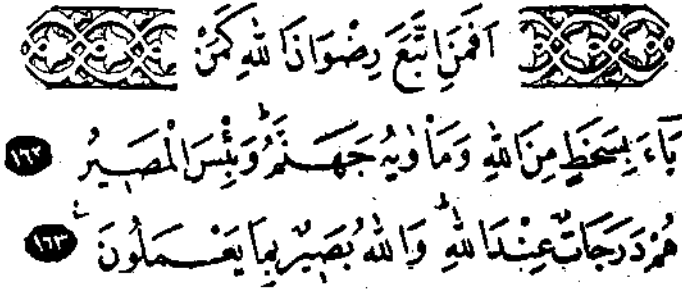 اَفَمَنِ اتَّبَعَ رِضْوَانَ اللهِ كَمَنْ
بَٓاءَ بِسَخَطٍ مِنَ اللهِ وَمَاْوٰيهُ جَهَنَّمُۜ وَبِئْسَ الْمَصٖيرُ ﴿١٦٢﴾
هُمْ دَرَجَاتٌ عِنْدَ اللهِۜ وَاللهُ بَصٖيرٌ بِمَا يَعْمَلُونَ ﴿١٦٣﴾